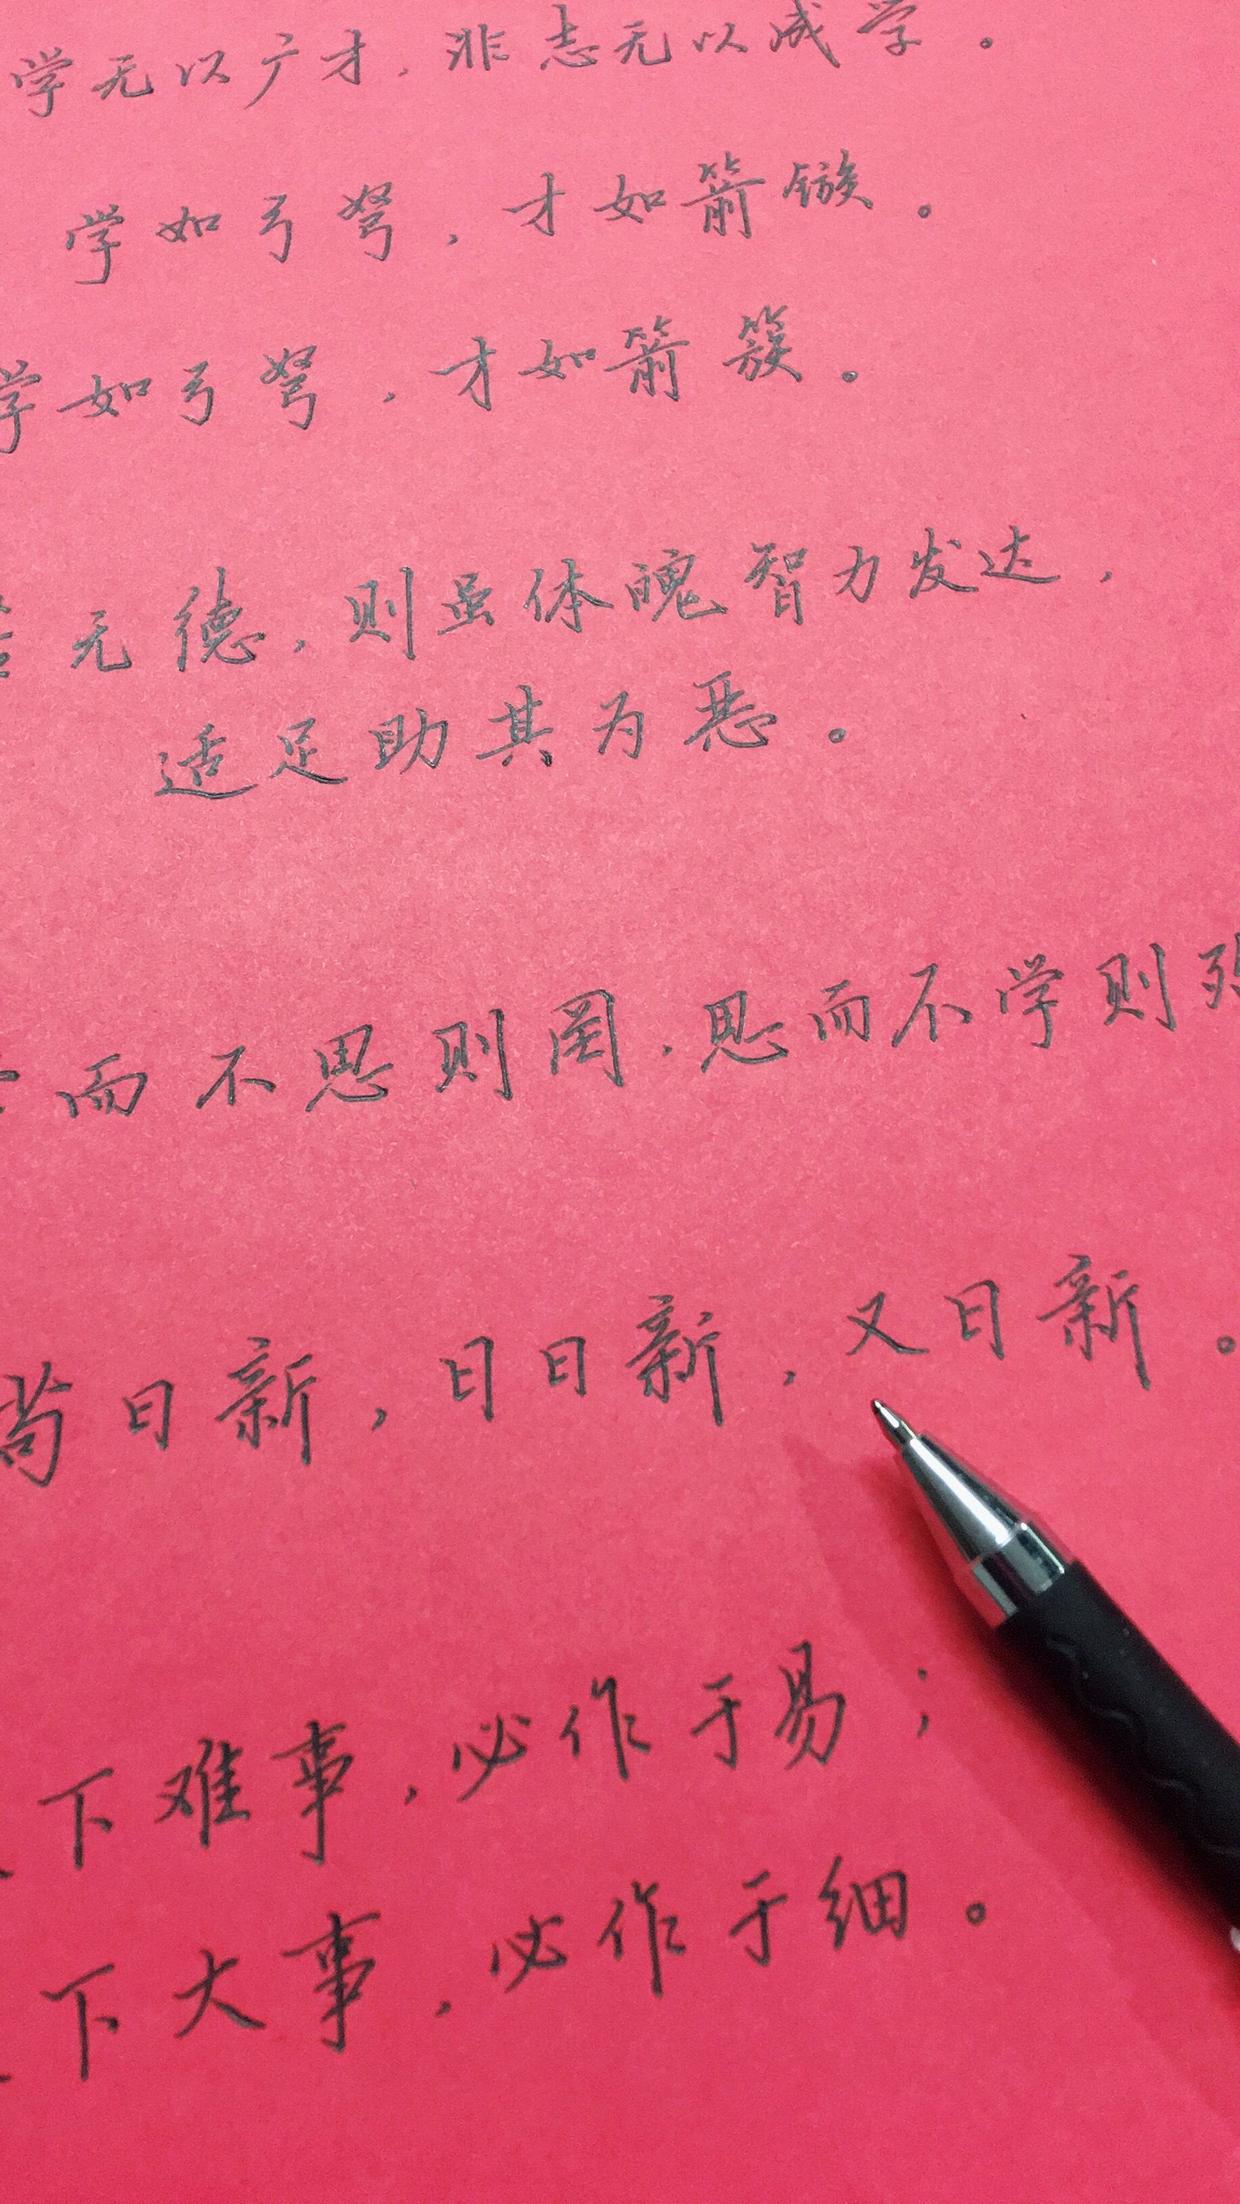 学无以广才，非志无以成学。
学如弓弩，才如箭镞。
学如弓弩，才如箭簇。
无德，则虽体魄智力发达，
适足助其为恶。
而不思则罔，思而不学则殆
苟日新，日日新，又日新。
下难事，必作于易；
下大事，必作于细。